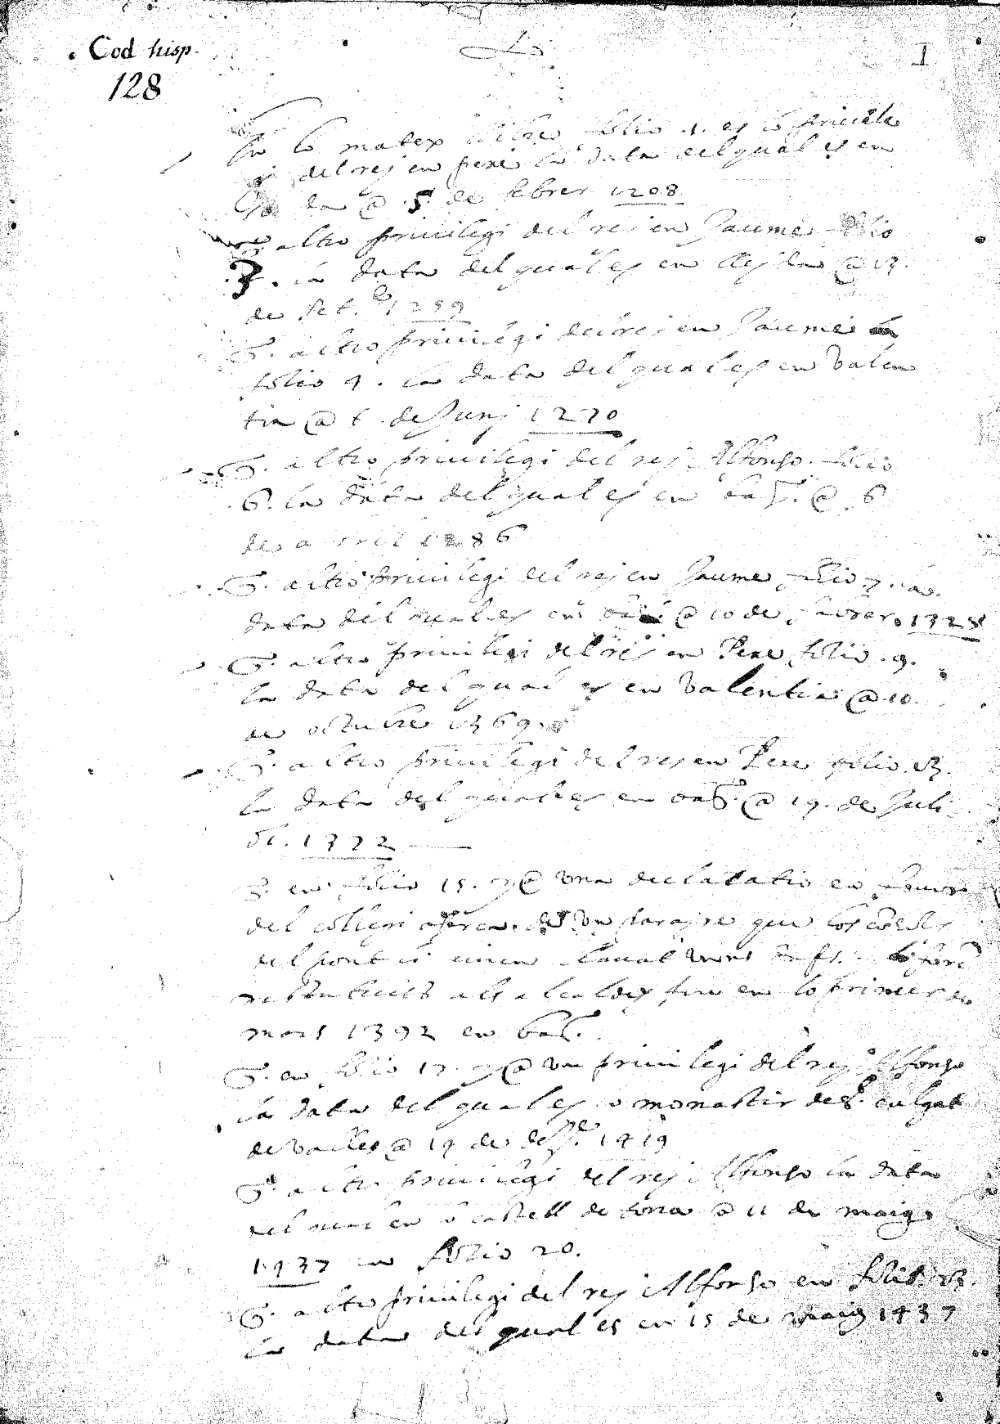 Cod hisp.
128
1
En lo matex libre folio 1. es lo privile
gi del rej en pere la data del qual es en
da @ 5 de febrer 1208
altro privilegi del rej en Jaume folio
3. la data del qual es en lleyda @ 13.
de set.e 1299
G. altro privilegi del rej en Jaume
folio 4. la data del qual es en Valen
tia @ 6. de Junj 1270
G. altro privilegi del rej Alfonso. folio
6. la data del qual es en baR. @ 6
de abril 1286
G. altro privilegi del rej en Jaume folio 7. la
data del qual es en @ 10 de 1328
G. altro privilegi del rej en Pere folio .9.
la data del qual es en Valentia @ 10.
de octubre 1369.
G. altro privilegi del rej en Pere folio .13.
la data del qual es en baR. @ 19. de Juli
ol. 1372
G. en folio 15. y @ una declaratio en favor
del collegi a serca de un paraire que los cosols
del pont
restituits als alcaldes fon en lo primer de
mars 1392 en baR.
G. en folio 17. y @ un privilegi del rej Alfonso
la data del qual es o monastir de S. culgat
de valles @ 19 de des.e 1419
G. altro privilegi del rej Alfonso la data
del qual es en o castell de @ 11 de maig
1437 en folio 20.
G. altro privilegi del rej Alfonso en folio 23.
la data del qual es en 15 de maig 1437